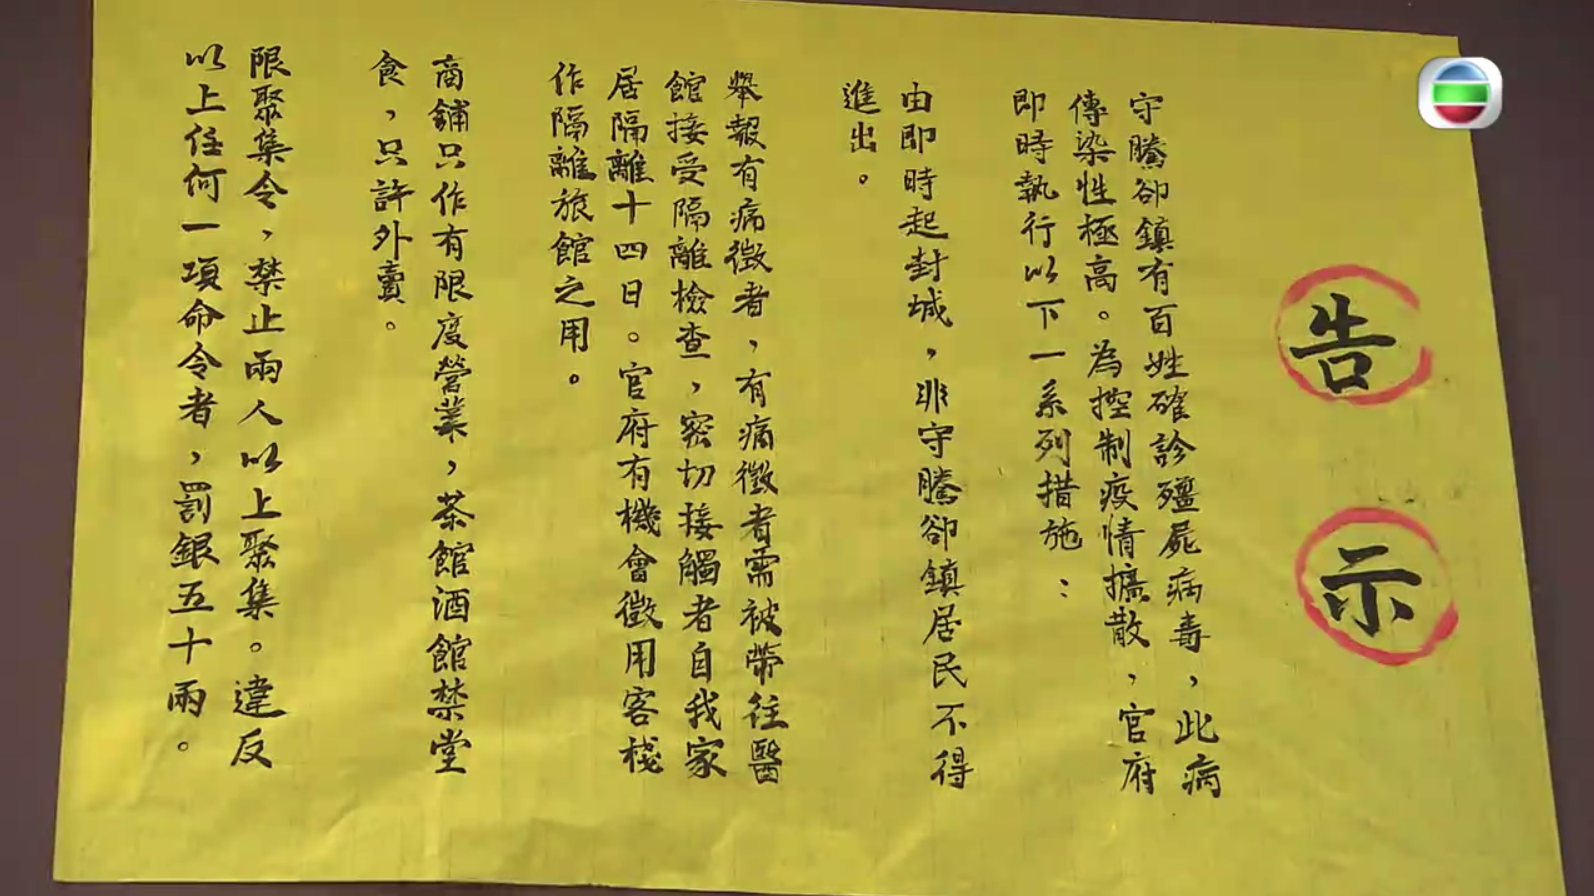 告示
守騰卻鎮有百姓確診殭屍病毒，此病
傳染性極高。為控制疫情擴散，官府
即時執行以下一系列措施：
由即時起封城，非守騰卻鎮居民不得
進出。
舉報有病徵者，有病徵者需被帶往醫
館接受隔離檢查，密切接觸者自我家
居隔離十四日。官府有機會徵用客棧
作隔離旅館之用。
商舖只作有限度營業，茶館酒館禁堂
食，只許外賣。
限聚集令，禁止兩人以上聚集。違反
以上任何一項命令者，罰銀五十兩。